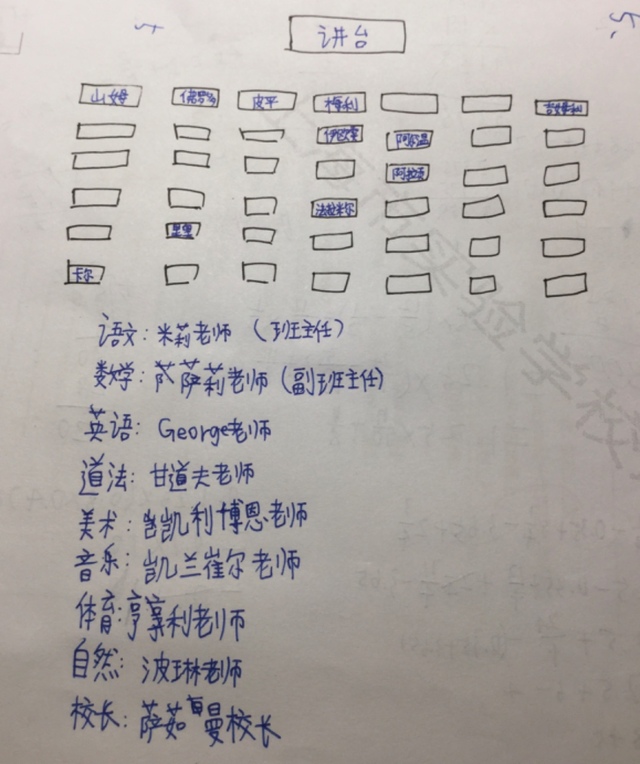 讲台
山姆 佛罗多 皮平 梅利
伊欧墨 阿尔温
阿拉贡
法拉米尔
里里
卡尔
语文: 米莉老师 (班主任)
数学: 萨莉老师 (副班主任)
英语: George老师
道法: 甘道夫老师
美术: 凯利博恩老师
音乐: 凯兰崔尔老师
体育: 亨利老师
自然: 波琳老师
校长: 萨茹曼校长